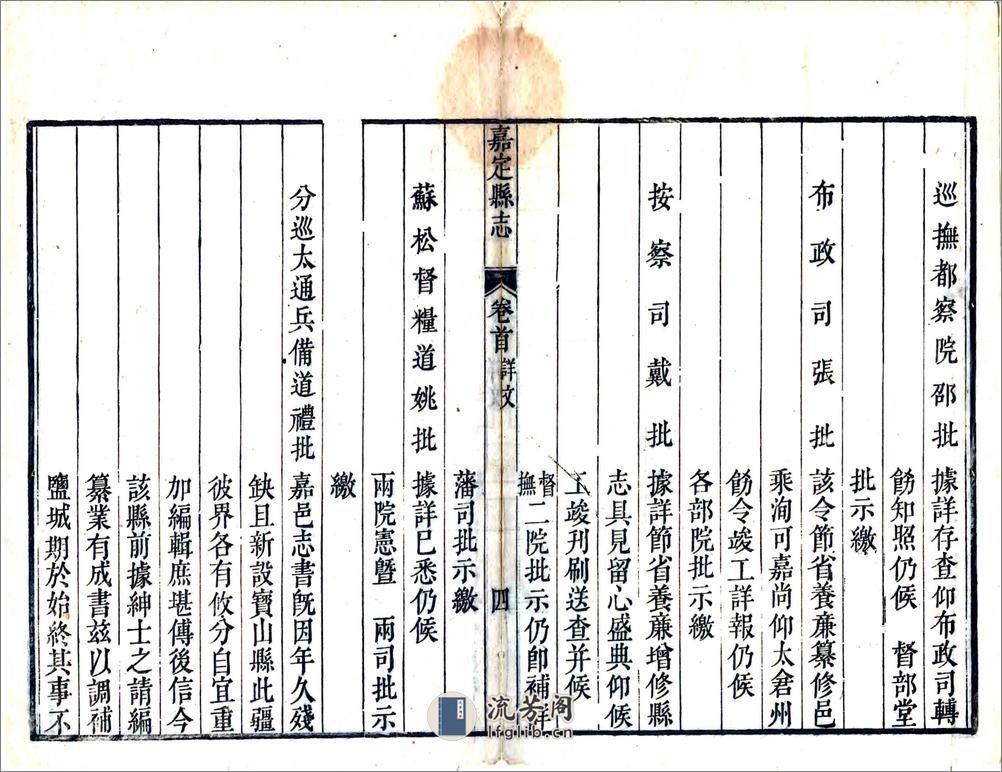 巡撫都察院邵批據詳存查仰布政司轉
飭知照仍候　督部堂
批示繳
布政司張批該令節省養廉纂修邑
乘洵可嘉尚仰太倉州
飭令竣工詳報仍候
各部院批示繳
按察司戴批據詳節省養亷增修縣
志具見留心盛典仰候
工竣刊刷送查并候
督撫二院批示仍卽補詳
嘉定縣志　卷首　詳文　四
藩司批示繳
蘇松督糧道姚批據詳已悉仍候
兩院憲曁　兩司批示
繳
分巡太通兵備道禮批嘉邑志書旣因年久殘
缺且新設寶山縣此疆
彼界各有攸分自宜重
加編輯庶堪傳後信今
該縣前據紳士之請編
纂業有成書兹以調補
鹽城期於始終其事不
流芳閣
lfglib.cn